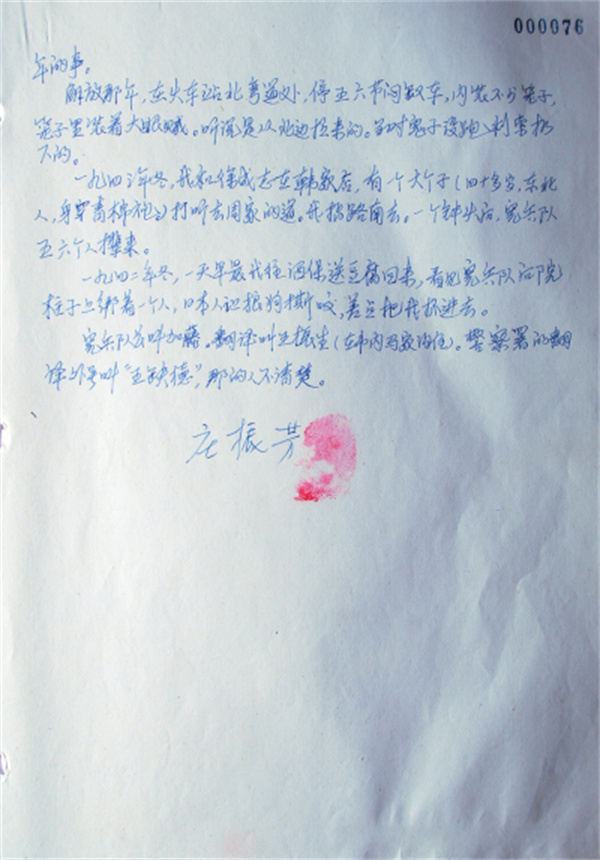 000076
年的事。
解放那年，在火车站北弯道处，停五六节闷罐车，内装不少笼子，
笼子里装着大眼贼。听说是从北边拉来的。当时鬼子没跑利索扔
下的。
一九四〇年冬，我和徐成志在韩家店，有一个大个子（四十多岁，东北
人，身穿青棉袍）打听去周家的道。我指路南去。一个钟头后，宪兵队
五六个人撵来。
一九四二年冬，一天早晨我往酒保送豆腐回来，看见宪兵队后院
柱子上绑着一个人，日本人让狼狗撕咬，差点把我抓进去。
宪兵队长叫加藤。翻译叫王振生（在市内住）。警察署的翻
译外号叫“王缺德”，那的人不清楚。
庄振芳